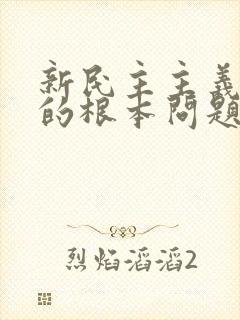 新民主主義
的根本問題
烈焰滔滔2